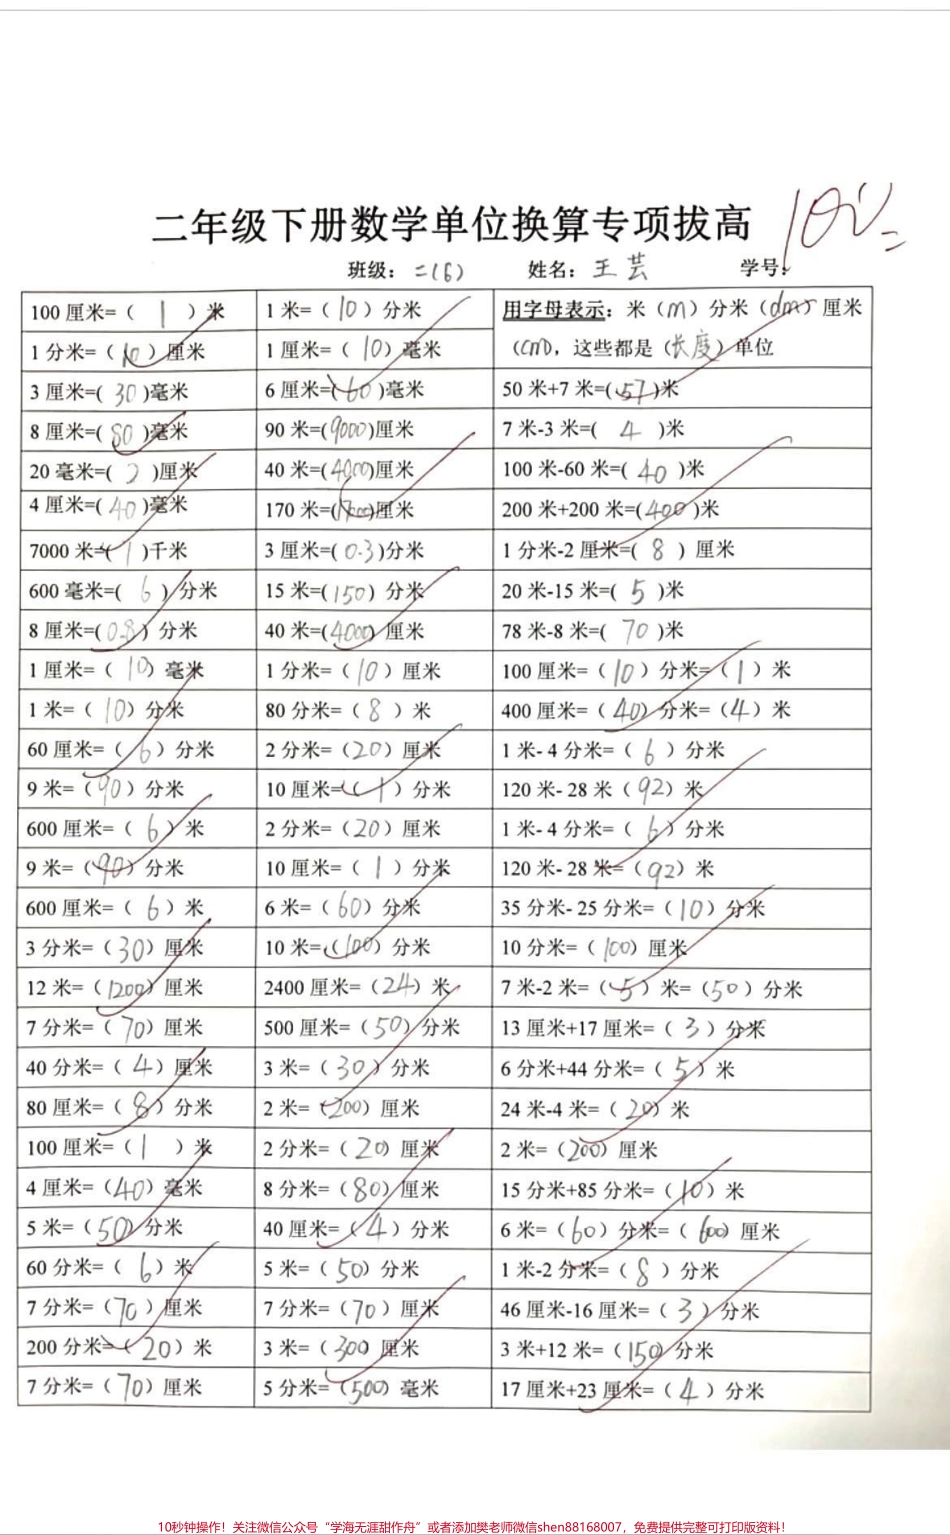 二年级下册数学单位换算专项拔高
100
班级：二(6) 姓名：王芸 学号：
100 厘米=（ 1 ）米 1 米=（10）分米 用字母表示：米（m）分米（dm）厘米
1 分米=（10）厘米 1 厘米=（ 10）毫米 （cm)，这些都是（长度）单位
3 厘米=( 30 )毫米 6 厘米=( 60 )毫米 50 米+7 米=( 57)米
8 厘米=( 80 )毫米 90 米=(9000)厘米 7 米-3 米=( 4 )米
20 毫米=( 2 )厘米 40 米=(4000)厘米 100 米-60 米=( 40 )米
4 厘米=( 40 )毫米 170 米=( )厘米 200 米+200 米=(400 )米
7000 米=( )千米 3 厘米=( 0.3)分米 1 分米-2 厘米=( 8 ) 厘米
600 毫米=( 6 ) 分米 15 米=(150) 分米 20 米-15 米=( 5 )米
8 厘米=(0.8) 分米 40 米=(4000) 厘米 78 米-8 米=( 70 )米
1 厘米=（ 10）毫米 1 分米=（10）厘米 100 厘米=（10）分米=（1）米
1 米=（ 10）分米 80 分米=（ 8 ）米 400 厘米=（ 40）分米=（4）米
60 厘米=（ 6）分米 2 分米=（20）厘米 1 米- 4 分米=（ 6 ）分米
9 米=（90）分米 10 厘米=（ 1 ）分米 120 米- 28 米（92）米
600 厘米=（ 6）米 2 分米=（20）厘米 1 米- 4 分米=（ 6）分米
9 米=（90）分米 10 厘米=（ 1 ）分米 120 米- 28 米=（92）米
600 厘米=（ 6）米 6 米=（60）分米 35 分米- 25 分米=（10）分米
3 分米=（30）厘米 10 米=（100）分米 10 分米=（100）厘米
12 米=（1200）厘米 2400 厘米=（24）米 7 米-2 米=（ 5）米=（50）分米
7 分米=（ 70）厘米 500 厘米=（50）分米 13 厘米+17 厘米=（ 3 ）分米
40 分米=（ 4）厘米 3 米=（ 30 ）分米 6 分米+44 分米=（ 5 ）米
80 厘米=（ 8）分米 2 米=（200）厘米 24 米-4 米=（ 20）米
100 厘米=（ 1 ）米 2 分米=（ 20）厘米 2 米=（200）厘米
4 厘米=（40）毫米 8 分米=（80）厘米 15 分米+85 分米=（10）米
5 米=（50）分米 40 厘米=（ 4 ）分米 6 米=（60）分米=（ 600）厘米
60 分米=（ 6）米 5 米=（50）分米 1 米-2 分米=（ 8 ）分米
7 分米=（70）厘米 7 分米=（70）厘米 46 厘米-16 厘米=（ 3）分米
200 分米=（ 20）米 3 米=（300）厘米 3 米+12 米=（150）分米
7 分米=（70）厘米 5 分米=（500）毫米 17 厘米+23 厘米=（ 4 ）分米
10秒钟操作！关注微信公众号“学海无涯甜作舟”或者添加樊老师微信shen88168007，免费提供完整可打印版资料！